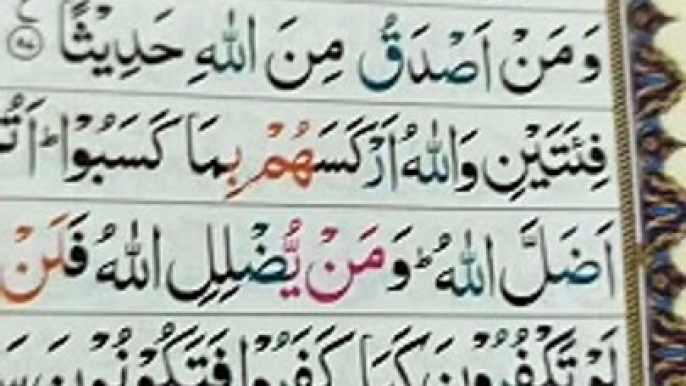 وَمَنْ اَصْدَقُ مِنَ اللهِ حَدِيْثًا
فِئَتَيْنِ وَاللهُ اَرْكَسَهُمْ بِمَا كَسَبُوْا ؕ
اَضَلَّ اللهُ ؕ وَمَنْ يُّضْلِلِ اللهُ فَلَنْ
لَوْ تَكْفُرُوْنَ كَمَا كَفَرُوْا فَتَكُوْنُوْنَ